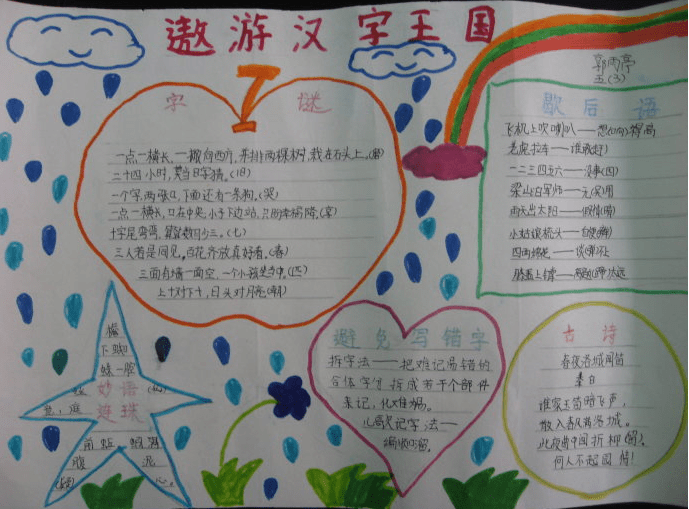 遨游汉字王国
郭雨亭
五(3)
字谜
一点一横长,一撇向西方,来排两棵树,我在石头上。(磨)
二十四小时,莫当日字猜。(旧)
一个字,两张口,下面还有一条狗。(哭)
一点一横长,口在中央,小子下边站,只
十字尾弯弯,算算数可少三。(七)
三人若是同见,百花齐放真好看。(春)
三面有墙一面空,一个小孩
上十对下十,日头对月亮(朝)
歇后语
飞机上吹喇叭——想(响)得高
老虎拉车——谁敢赶
一二三四五六——没事(四)
梁山的军师——无(吴)用
雨天出太阳——假情(晴)
小姑娘梳头——自便(辫)
四两棉花——谈(弹)
妙语
连珠
避免写错字
拆字法——把难记易错的
合体字分拆成若干个部件
来记,化难为易。
儿歌记字法——
古诗
春夜洛城闻笛
李白
谁家玉笛暗飞声,
散入春风满洛城。
此夜曲中闻折柳,
何人不起园情!